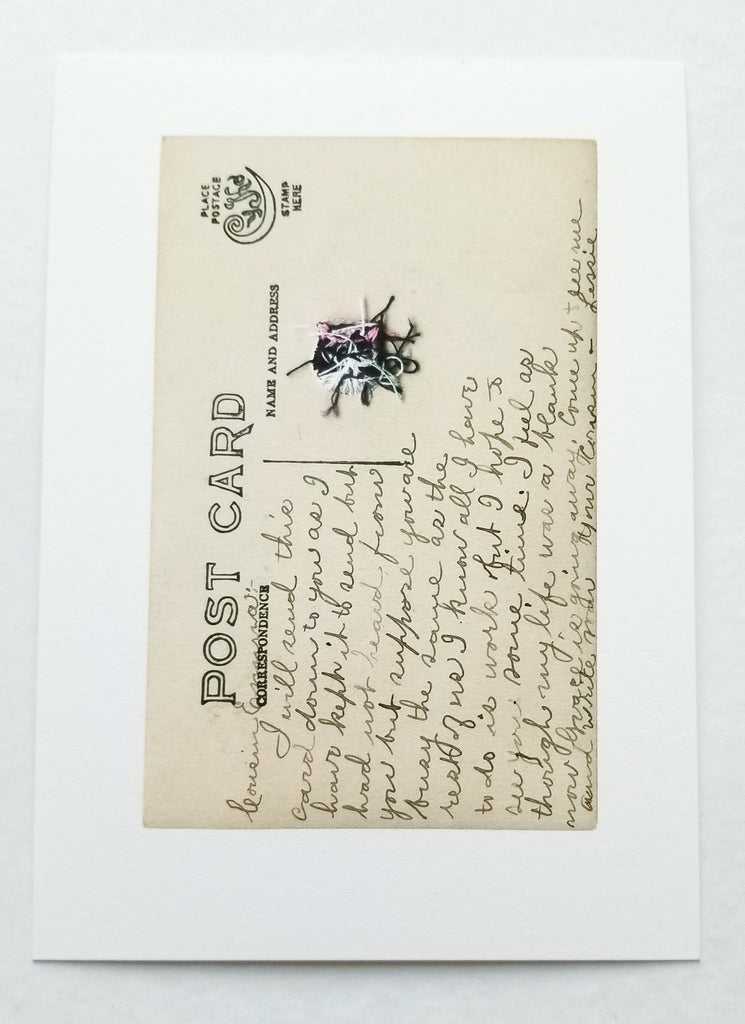 POST CARD
PLACE
POSTAGE
STAMP
HERE
CORRESPONDENCE
NAME AND ADDRESS
Cousin
I will send this
card down to you as I
have kept it to send but
had not heard from
you but suppose you are
busy the same as the
rest of us I know all I have
to do is work but I hope to
see you some time. I feel as
though my life was a blank
now Grace is going away. Come up & see me
and write soon your Cousin - Lessie